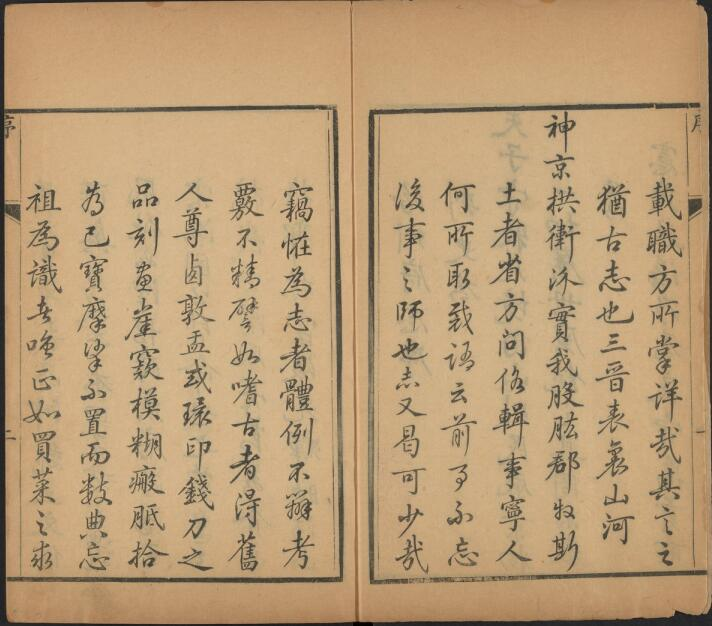 載職方所掌詳哉其言之
猶古志也三晉表裏山河
神京拱衛汾實我股肱郡牧斯
土者省方問俗輯事寧人
何所取哉語云前事不忘
後事之師也志又曷可少哉
竊怪為志者體例不辯考
覈不精譬如嗜古者得舊
人尊卣敦盂或環印錢刀之
品刻畫崖窾模糊瘢胝拾
為已寶摩挲不置而數典忘
祖為識者嗤正如買菜之求
序
二